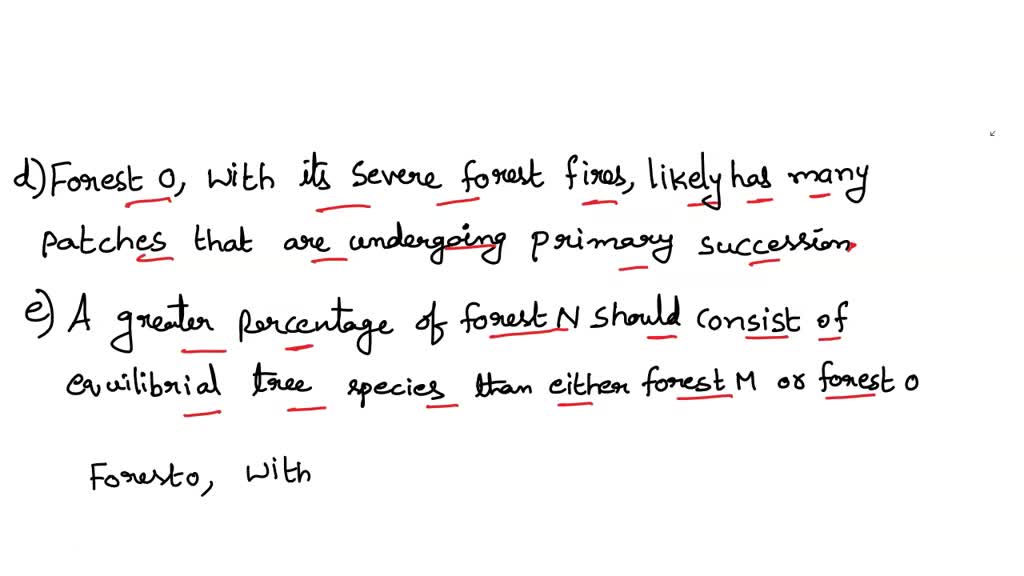 d) Forest O, with its severe forest fires, likely has many
patches that are undergoing primary succession.
e) A greater percentage of forest N should consist of
equilibrial tree species than either forest M or forest O
Forest O, with